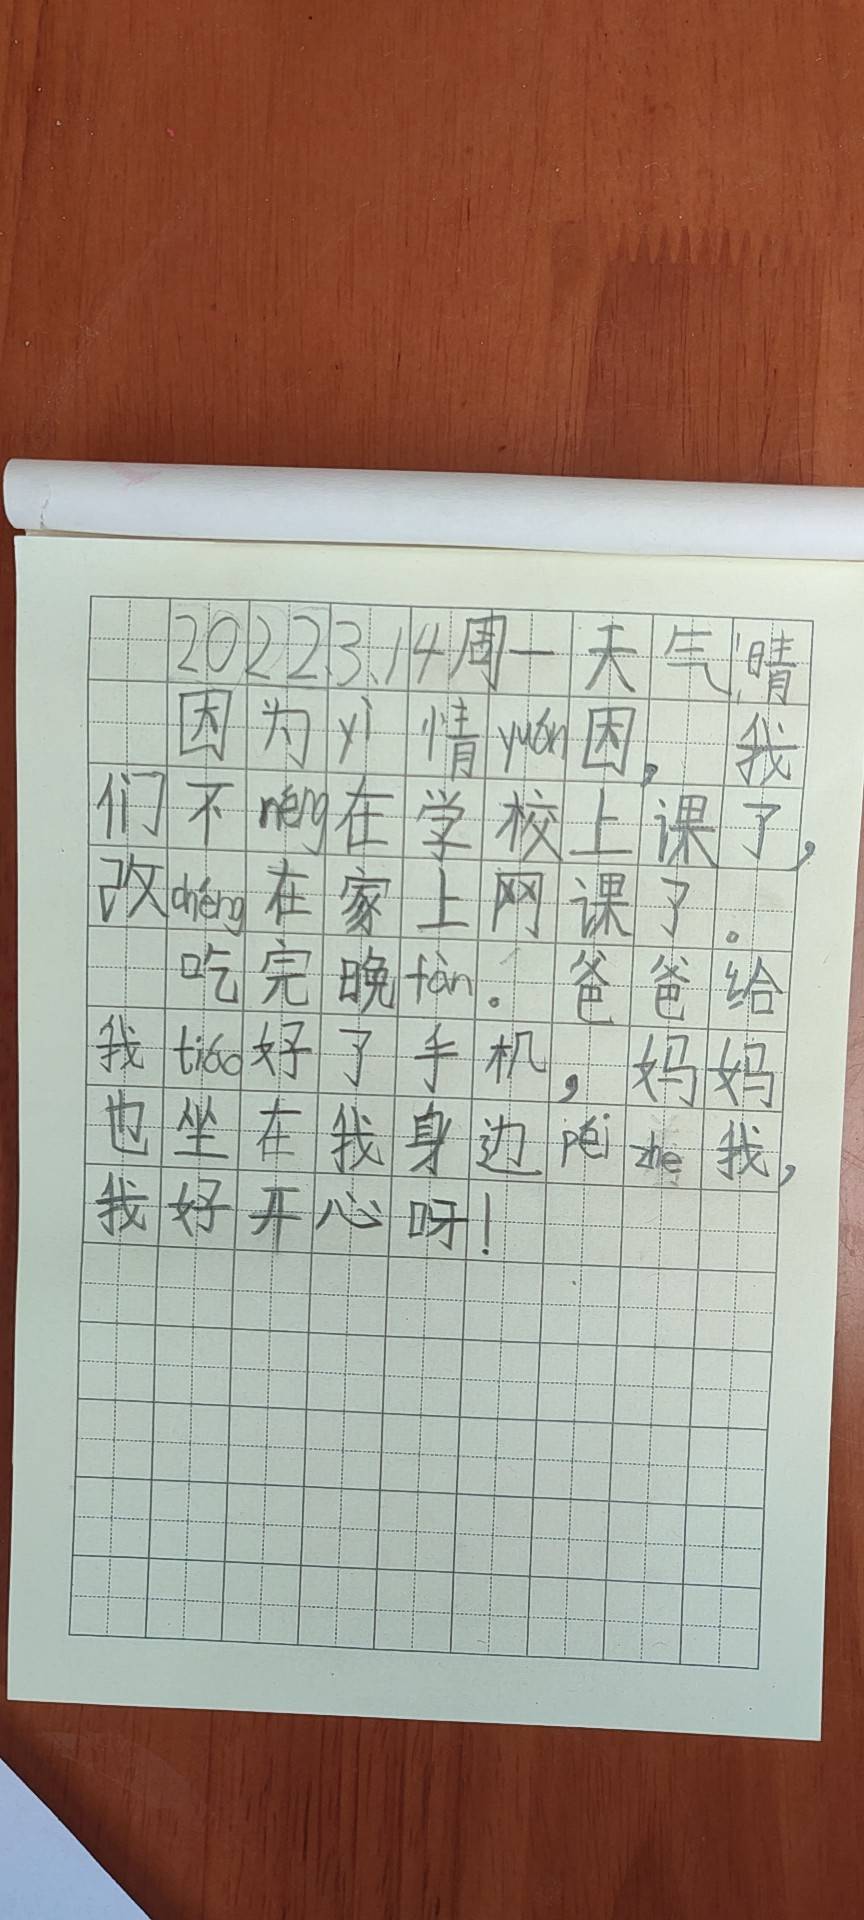 2022.3.14周一天气晴
因为yì情yuán因，我
们不néng在学校上课了，
改chéng在家上网课了。
吃完晚fàn。爸爸给
我tiáo好了手机，妈妈
也坐在我身边péi zhe我，
我好开心呀！